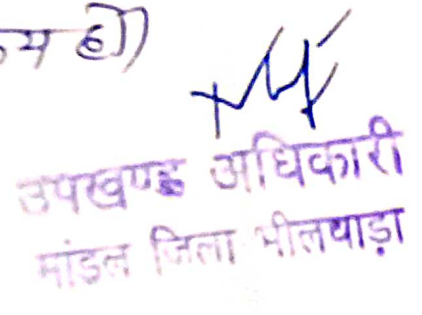 हो)
उपखण्ड अधिकारी
मांडल जिला भीलवाड़ा